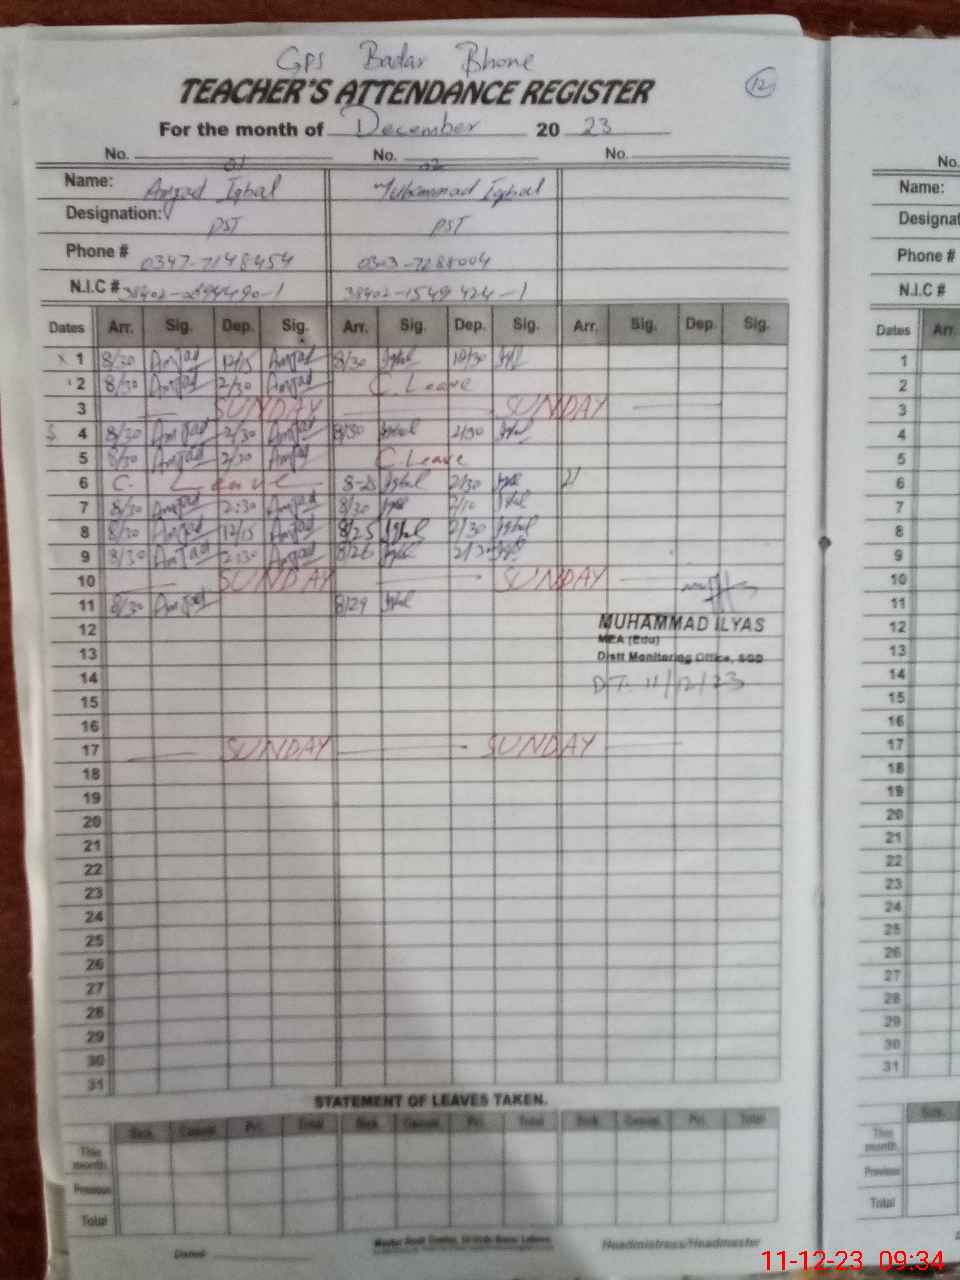 GPS Badar Bhone
TEACHER'S ATTENDANCE REGISTER
12
For the month of December 20 23
No. 01 No. 02 No.
Name: Amjad Iqbal Muhammad Iqbal
Designation: PST PST
Phone # 0347-7148454
N.I.C # 38402-1549424-1
Dates Arr. Sig. Dep. Sig. Arr. Sig. Dep. Sig. Arr. Sig. Dep. Sig.
1 8/30 Amjad 12/15 Amjad 8/30 Iqbal Iqbal
2 8/30 Amjad 2/30 Amjad C. Leave
3 SUNDAY SUNDAY
4 8/30 Amjad 2/30 Amjad 8/30 Iqbal 2/30 Iqbal
5 8/30 Amjad 2/30 Amjad C. Leave
6 C. Leave 8-25 Iqbal 2/30 Iqbal
7 8/30 Amjad 2:30 Amjad 8/30 Iqbal Iqbal
8 8/30 Amjad 12/15 Amjad 8/25 Iqbal 2/30 Iqbal
9 8/30 Amjad 2:30 Amjad 8/26 Iqbal 2/30 Iqbal
10 SUNDAY SUNDAY
11 8/30 Amjad 8/29 Iqbal
12 MUHAMMAD ILYAS
MEA (Edu)
13 Distt Monitoring Office, SGD
14 DT. 11/12/23
15
16
17 SUNDAY SUNDAY
18
19
20
21
22
23
24
25
26
27
28
29
30
31
STATEMENT OF LEAVES TAKEN.
Sick. Casual. Pri. Total Sick. Casual. Pri. Total Sick. Casual. Pri. Total
This month.
Previous
Total
Dated
Headmistress/Headmaster
No.
Name:
Phone #
N.I.C #
Dates Arr.
1
2
3
4
5
6
7
8
9
10
11
12
13
14
15
16
17
18
19
20
21
22
23
24
25
26
27
28
29
30
31
Sick.
This month.
Previous
Total
11-12-23 09:34